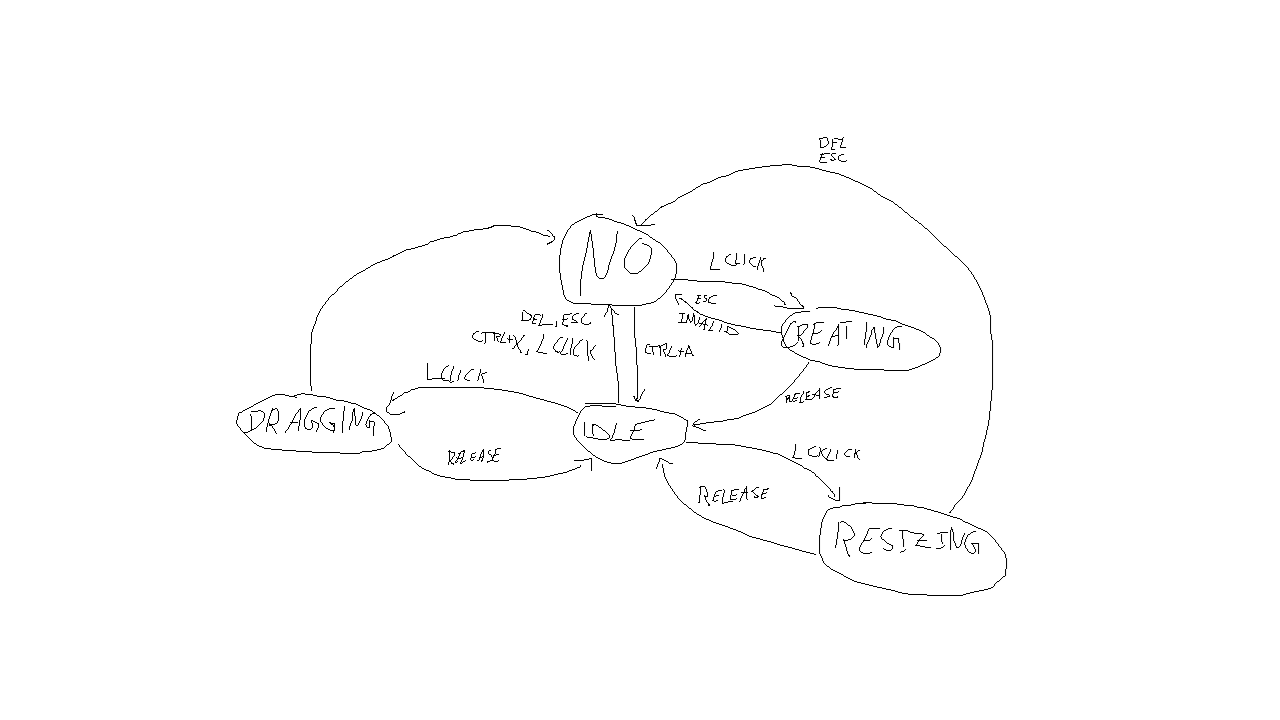 DEL
ESC
NO
LCLICK
ESC
INVALID
CREATING
DEL, ESC
CTRL+X, LCLICK
CTRL+A
LCLICK
RELEASE
DRAGGING
IDLE
RELEASE
LCKLICK
RELEASE
RESIZING